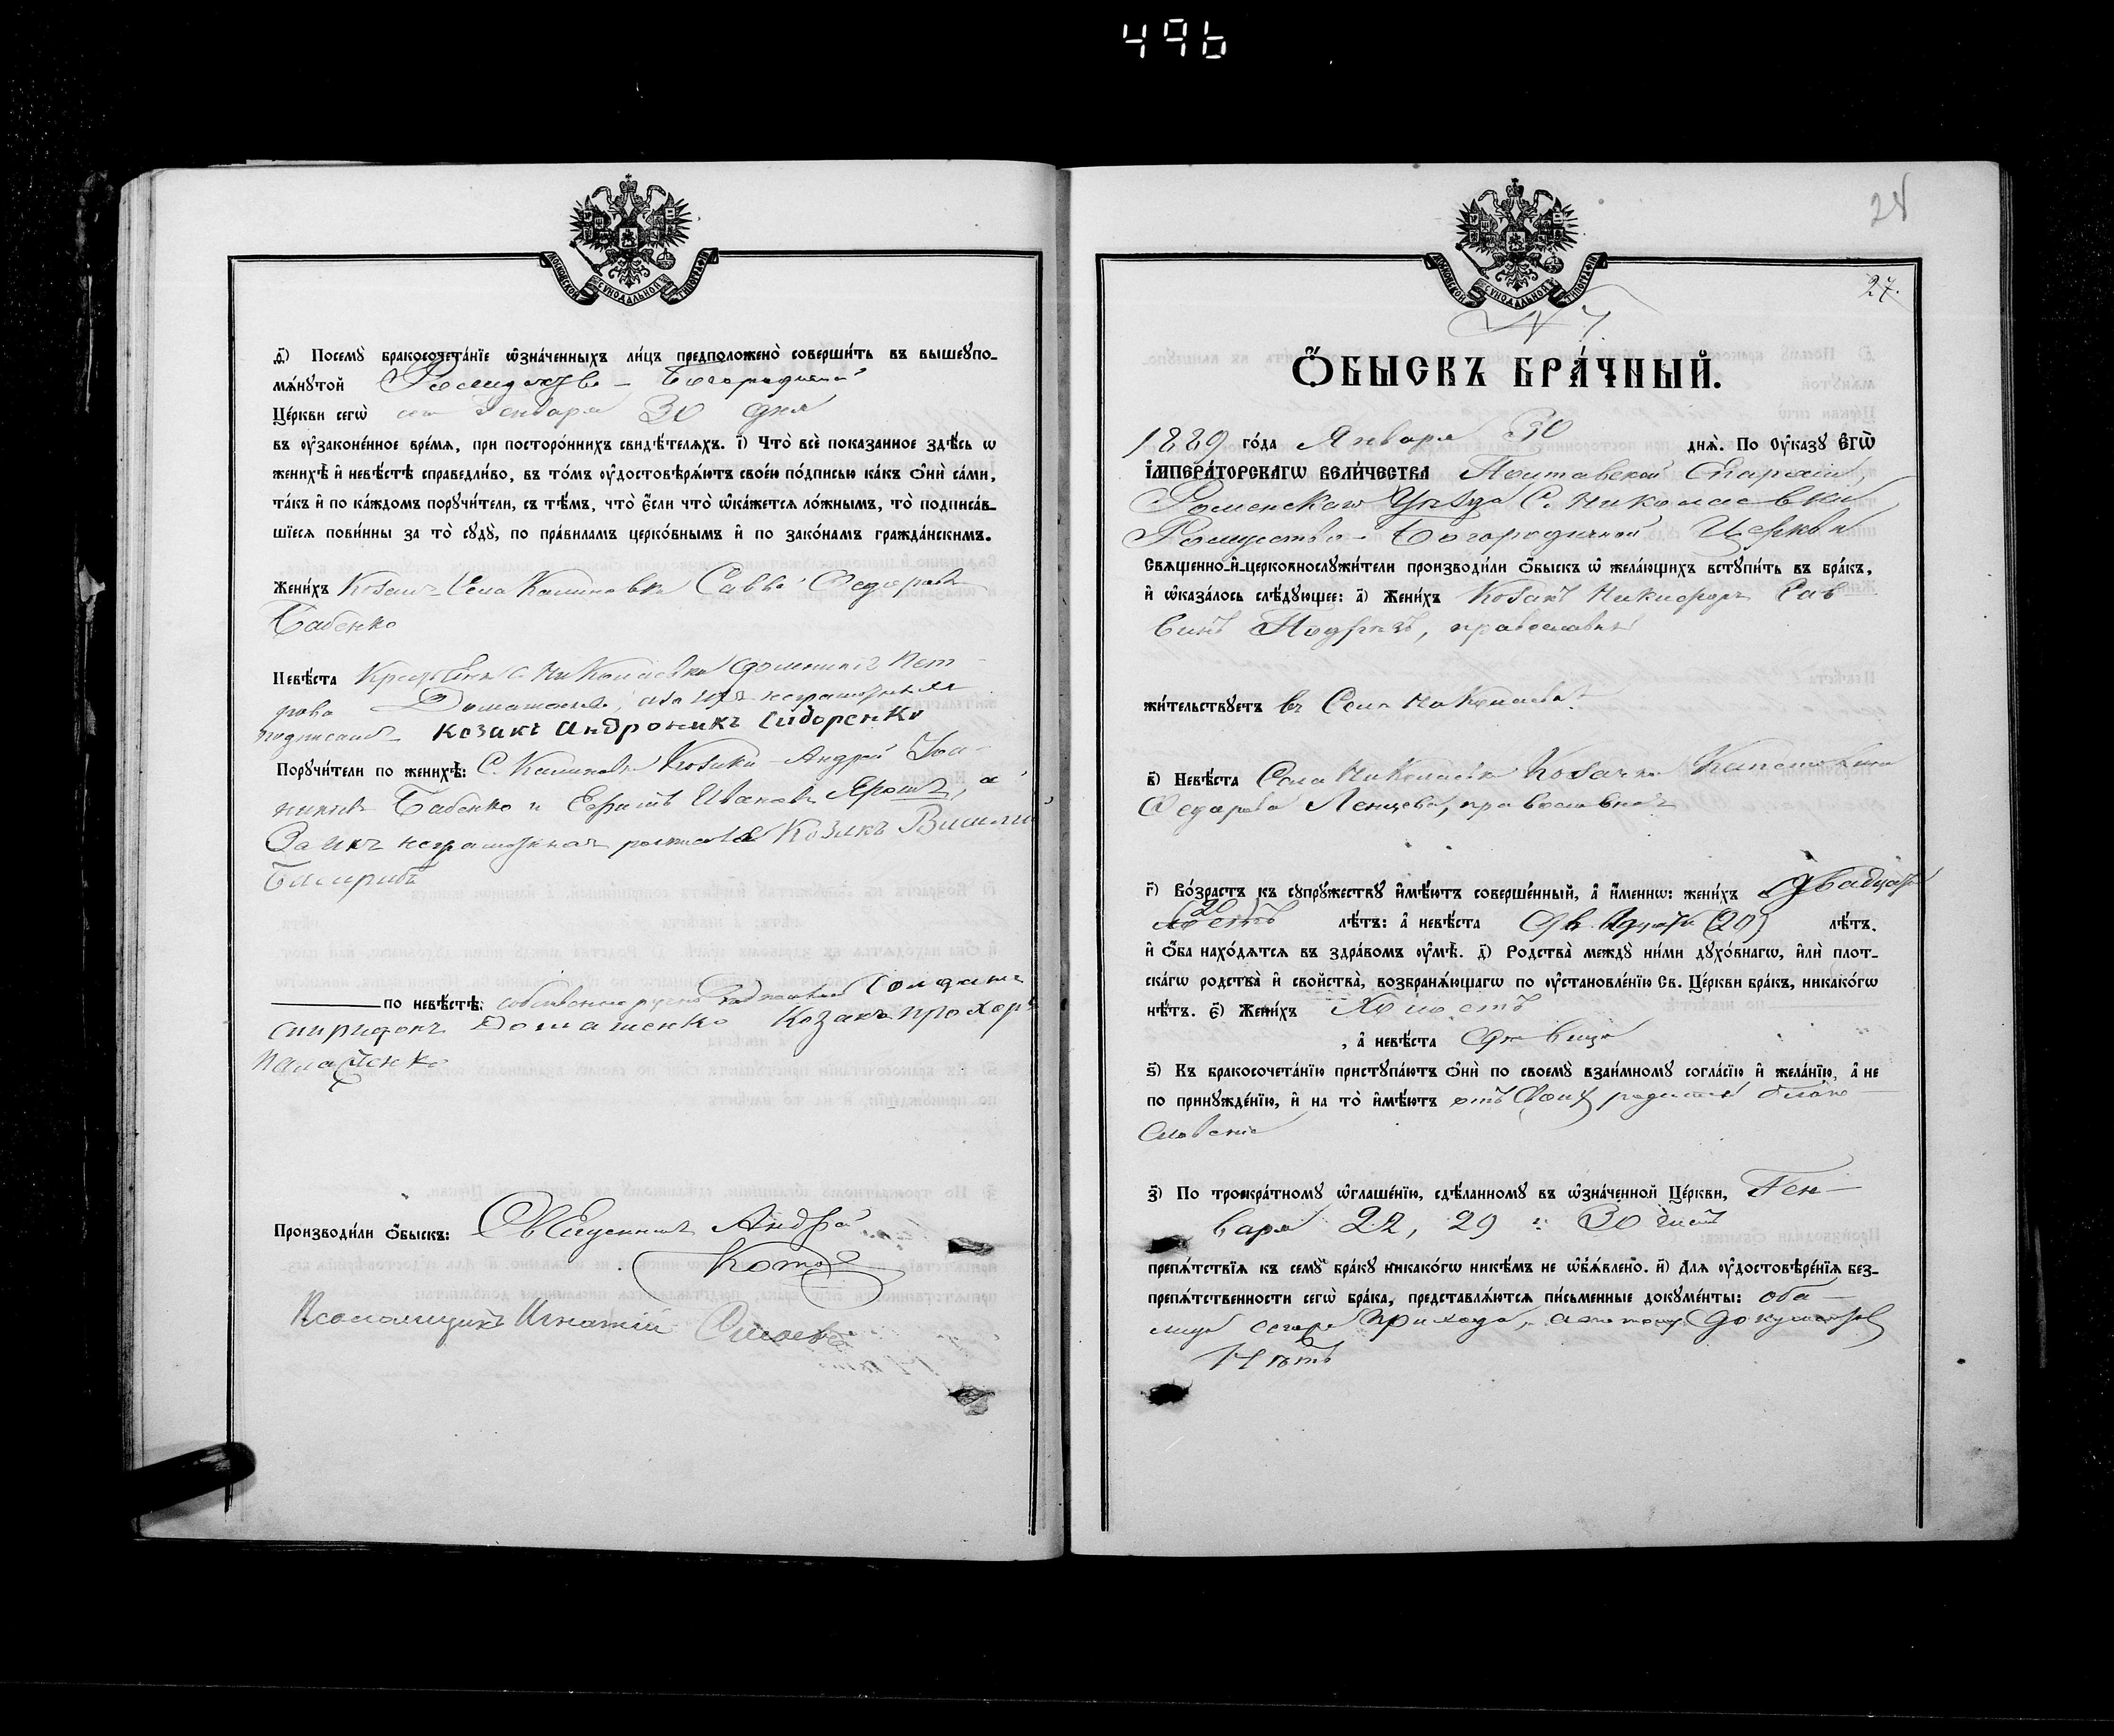 496
МОСКОВСКОЙ СѴНОДАЛЬНОЙ ТИПОГРАФІИ
Посемꙋ̀ бракосочета́нїе ѡ҆зна́ченныхъ ли́цъ предположено̀ соверши́ть въ вышеꙋпо-
мѧ́нꙋтой Рождество-Богородичной
Це́ркви сегѡ̀ Января 30 дня
въ ᲂу҆законе́нное вре́мѧ, при посторо́ннихъ свидѣ́телѧхъ. і҃) Что̀ всѐ показанное здѣ́сь ѡ
женихѣ̀ и҆ невѣ́стѣ справедли́во, въ то́мъ ᲂу҆достовѣрѧ́ютъ свое́ю по́дписью ка́къ ѻ҆нѝ са́ми,
та́къ и҆ по ка́ждомъ порꙋчи́тели, съ тѣ́мъ, что̀ є҆́сли что̀ ѡ҆ка́жетсѧ ло́жнымъ, то̀ подписа́в-
шїесѧ пови́нны за то̀ сꙋдꙋ̀, по пра́виламъ церко́внымъ и҆ по зако́намъ гражда́нскимъ.
Жени́хъ Козакъ Села Калиновки Савва Федоровъ
Бабенко
Невѣ́ста с. Николаевки Пет-
рова неграмотныхъ
Козакъ Андроникъ Сидоренко
Порꙋчи́тели по женихѣ̀: С. Калиновки Козаки Андрей
Бабенко и Ефимъ Ивановъ Ярошъ, а
неграмотныхъ Козакъ
по невѣ́стѣ: собственноручно Солдатъ
спиридонъ Домашенко Козакъ прохоръ
Производи́ли ѻ҆́быскъ: Священникъ Андрей
Псаломщикъ Игнатій
28
27.
МОСКОВСКОЙ СѴНОДАЛЬНОЙ ТИПОГРАФІИ
N 7.
Ѻ҆́БЫСКЪ БРА́ЧНЫЙ.
1889 го́да Января 30 днѧ̀. По ᲂу҆ка́зꙋ є҆гѡ̀
і҆мпера́торскагѡ вели́чества Полтавской Епархіи,
Роменскаго Уѣзда С. Николаевки
Рождество-Богородичной Церкви
Свѧще́нно-и҆-церковнослꙋжи́тели производи́ли ѻ҆́быскъ ѡ҆ жела́ющихъ встꙋпи́ть въ бра́къ,
и҆ ѡ҆каза́лось слѣ́дꙋющее: а҃) Жени́хъ Козакъ Никифоръ Сав
винъ православный
жи́тельствꙋетъ въ Селѣ Николаевкѣ.
в҃) Невѣ́ста Села Николаевки Козачка
Федорова православная
г҃) Во́зрастъ къ сꙋпрꙋ́жествꙋ и҆мѣ́ютъ соверше́нный, а҆ и҆́меннѡ: жени́хъ двадцать
20
лѣ́тъ: а҆ невѣ́ста двадцать (20) лѣ́тъ.
и҆ ѻ҆́ба нахо́дѧтсѧ въ здра́вомъ ᲂу҆мѣ̀. д҃) Родства̀ междꙋ̀ ни́ми дꙋхо́внагѡ, и҆лѝ плот-
ска́гѡ родства̀ и҆ сво́йства, возбранѧ́ющагѡ по ᲂу҆становле́нїю Св. Це́ркви бра́къ, никако́гѡ
нѣ́тъ. є҃) Жени́хъ Холостъ
, а҆ невѣ́ста дѣвица
ѕ҃) Къ бракосочета́нїю пристꙋпа́ютъ ѻ҆нѝ по своемꙋ̀ взаи́мномꙋ согла́сїю и҆ жела́нїю, а҆ не
по принꙋжде́нїю, и҆ на то̀ и҆мѣ́ютъ отъ своихъ родителей благо-
словеніе
з҃) По троекра́тномꙋ ѡ҆глаше́нїю, сдѣ́ланномꙋ въ ѡ҆зна́ченной Це́ркви, Ген-
варя 22, 29 и 30 числъ
препѧ́тствїѧ къ семꙋ̀ бра́кꙋ никако́гѡ никѣ́мъ не ѡ҆б̾ѧ́влено. и҃) Длѧ ᲂу҆достовѣре́нїѧ без-
препѧ́тственности сегѡ̀ бра́ка, представлѧ́ютсѧ пи́сьменные докꙋме́нты: оба
лица сего прихода, а потому документовъ
Нѣтъ